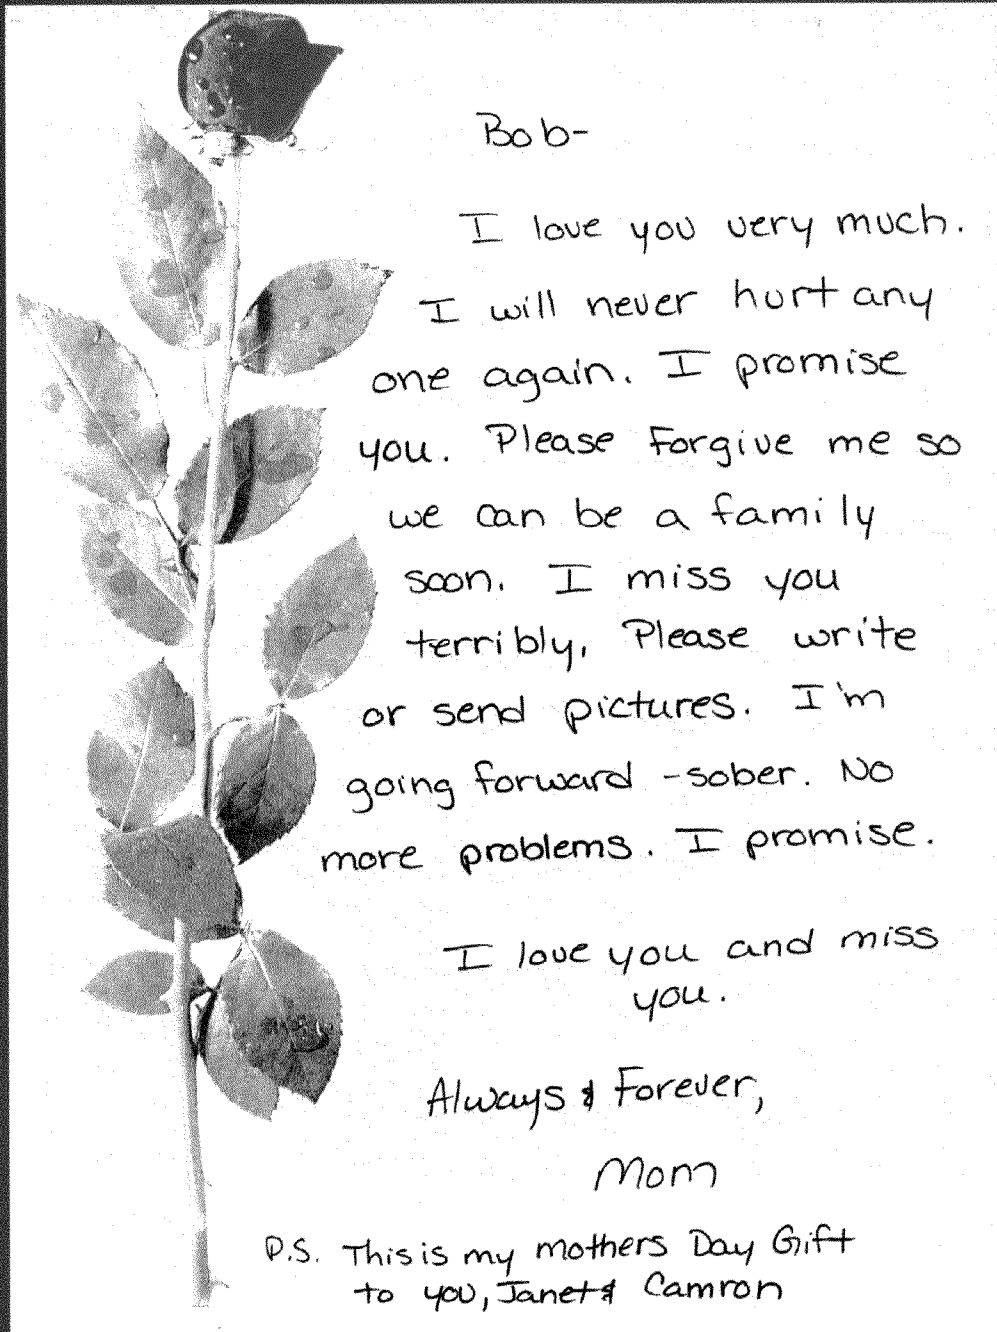 Bob-
I love you very much.
I will never hurt any
one again. I promise
you. Please Forgive me so
we can be a family
soon. I miss you
terribly, Please write
or send pictures. I'm
going forward -sober. No
more problems. I promise.
I love you and miss
you.
Always & Forever,
Mom
P.S. This is my mothers Day Gift
to you, Janet & Camron